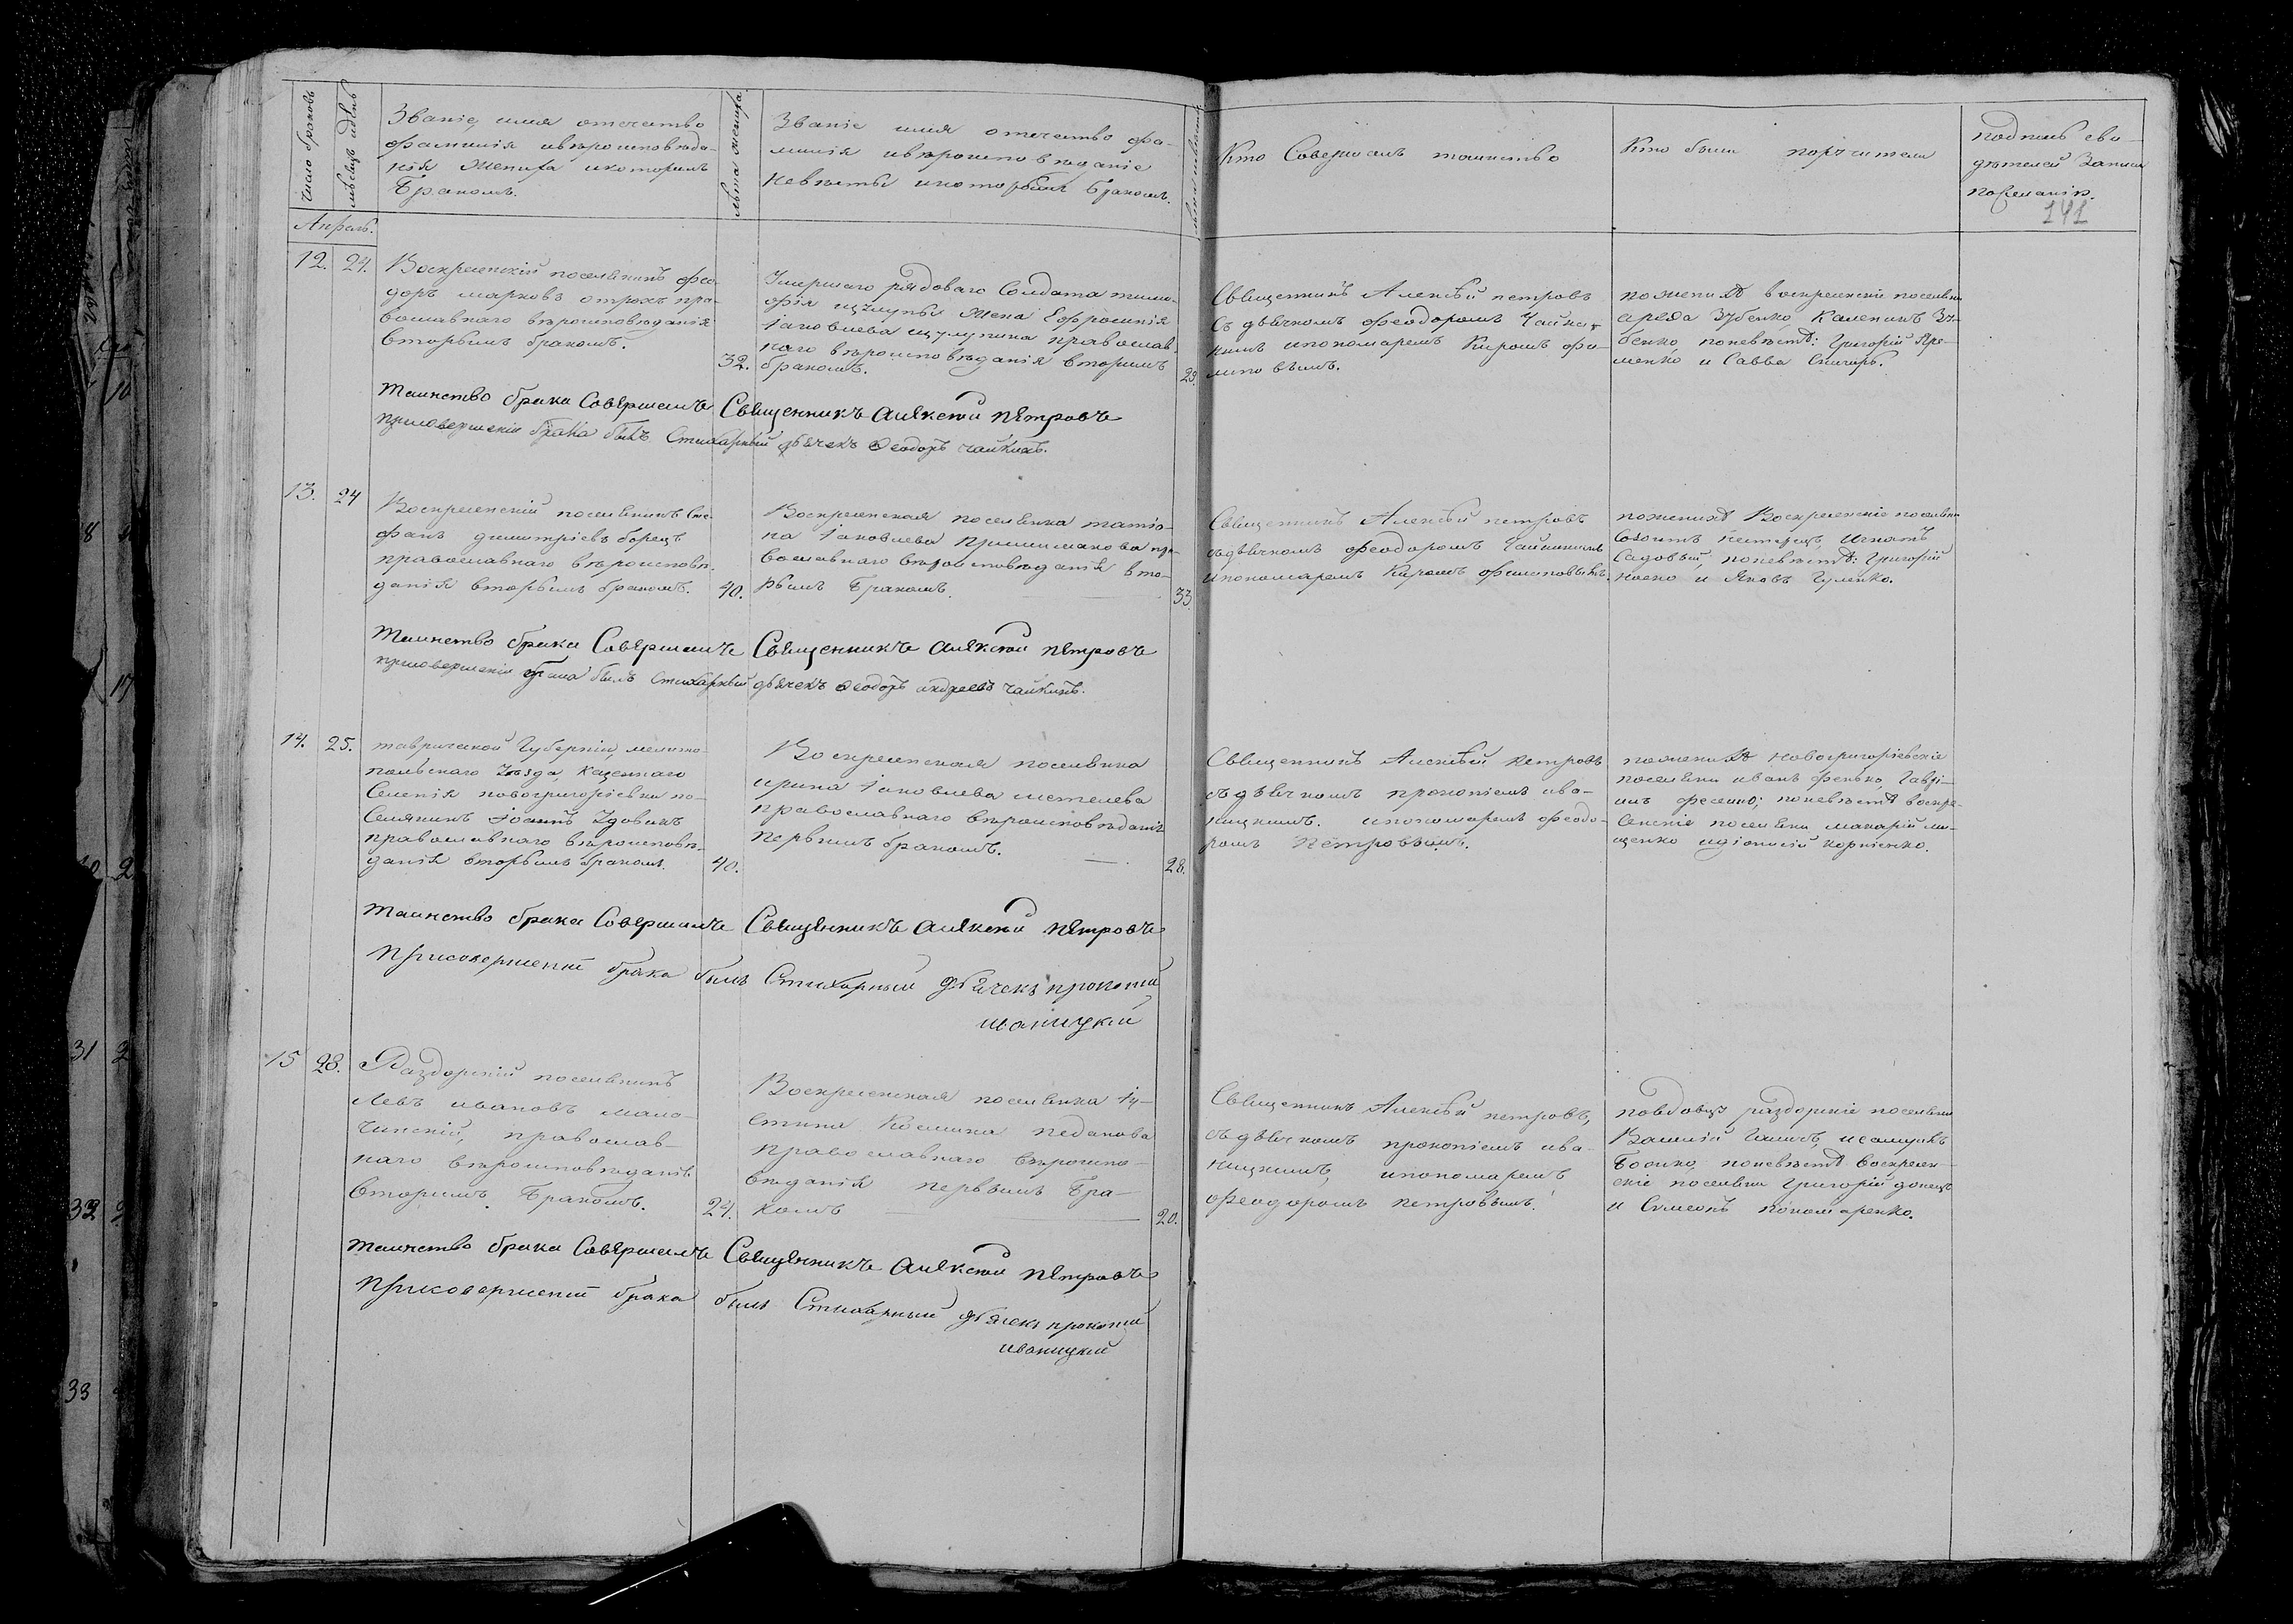 Число браковъ
мѣсяцъ и день
Званіе, имя отечество
фамилія ивѣроисповѣда-
нія Жениха икоторымъ
Бракомъ.
лѣта жениха.
Званіе имя отечество фа-
милія ивѣроисповѣданіе
Невѣсты икоторымъ Бракомъ.
лѣта невѣсты.
Кто Совершалъ таинство
Кто были поручители
подпись сви-
дѣтелей Записи
по желанію.
141
Апрель.
12. 24.
Воскресенскій поселянинъ Фео-
доръ марковъ отрохъ пра-
вославнаго вѣроисповѣданія
вторымъ бракомъ.
32.
Умершаго рядоваго Солдата тимо-
фѣя жена Ефросинія
Іаковлева православ-
наго вѣроисповѣданія вторымъ
бракомъ.
23.
Священникъ Алексѣй петровъ
Съ дьячкомъ Феодоромъ Чайки-
нымъ ипономаремъ Киромъ фи-
липовымъ.
поженихѣ воскресенскіе поселяни
Зубенко, Калениkъ Зу-
бенко, поневѣстѣ: Григорій Яре-
менко и Савва Снигиръ.
таинство брака Совершалъ Священникъ Алексѣй пѣтровъ
присовершеніи брака былъ Стихарный дьячекъ Феодоръ чайкинъ.
13. 24
Воскресенскій поселянинъ Сте-
фанъ димитріевъ борецъ
православнаго вѣроисповѣ-
данія вторымъ бракомъ.
40.
Воскресенская поселянка татія-
на Іаковлева Пришимакова пра-
вославнаго вѣроисповѣданія вто-
рымъ Бракомъ.
33.
Священникъ Алексѣй петровъ
съдьячкомъ Феодоромъ Чайкинымъ
ипономаремъ Киромъ Филиповымъ.
поженихѣ Воскресенскіе поселяни
Созонтъ нестерецъ, Игнатъ
Садовый, поневѣстѣ: Григорій
носко и Яковъ Гулейко.
таинство брака Совершалъ Священникъ Алексѣй пѣтровъ
присовершеніи брака былъ Стихарный дьячекъ Феодоръ андреевъ чайкинъ.
14. 25.
таврической Губерніи, мелито-
польскаго Уѣзда, Казеннаго
Селенія новогригоріевки по-
Селянинъ Іоаннъ Удовикъ
православнаго вѣроисповѣ-
данія вторымъ бракомъ.
40.
Воскресенская поселянка
ирина Іаковлева метелева
православнаго вѣроисповѣданія
первымъ бракомъ.
28.
Священникъ Алексѣй петровъ
съдьячкомъ прокопіемъ ива-
ницкимъ. ипономаремъ феодо-
ромъ Петровымъ.
поженихѣ новогригоріевскіе
поселяни иванъ фенько, Гаврі-
илъ фесенко; поневѣстѣ воскре-
сенскіе поселяни макарій ли-
щенко идіонисій корніенко.
таинство брака Совершалъ Священникъ Алексѣй пѣтровъ
присовершеніи брака былъ Стихарный дьячекъ прокопій
иваницкій
15 28.
Раздорскій поселянинъ
Левъ ивановъ мало-
чинскій, православ-
наго вѣроисповѣданія
вторымъ Бракомъ.
24.
Воскресенская поселянка Іу-
стина Космина педанова
православнаго вѣроиспо-
вѣданія первымъ Бра-
комъ
20.
Священникъ Алексѣй петровъ,
съдьячкомъ прокопіемъ ива-
ницкимъ, ипономаремъ
феодоромъ петровымъ.
повдовцѣ раздорскіе поселяни
Василій исамуилъ
Бойко, поневѣстѣ воскресен-
скіе поселяни Григорій донецъ
и Симеонъ пономаренко.
таинство брака Совершалъ Священникъ Алексѣй пѣтровъ
присовершеніи брака былъ Стихарный дьячекъ прокопій
иваницкій